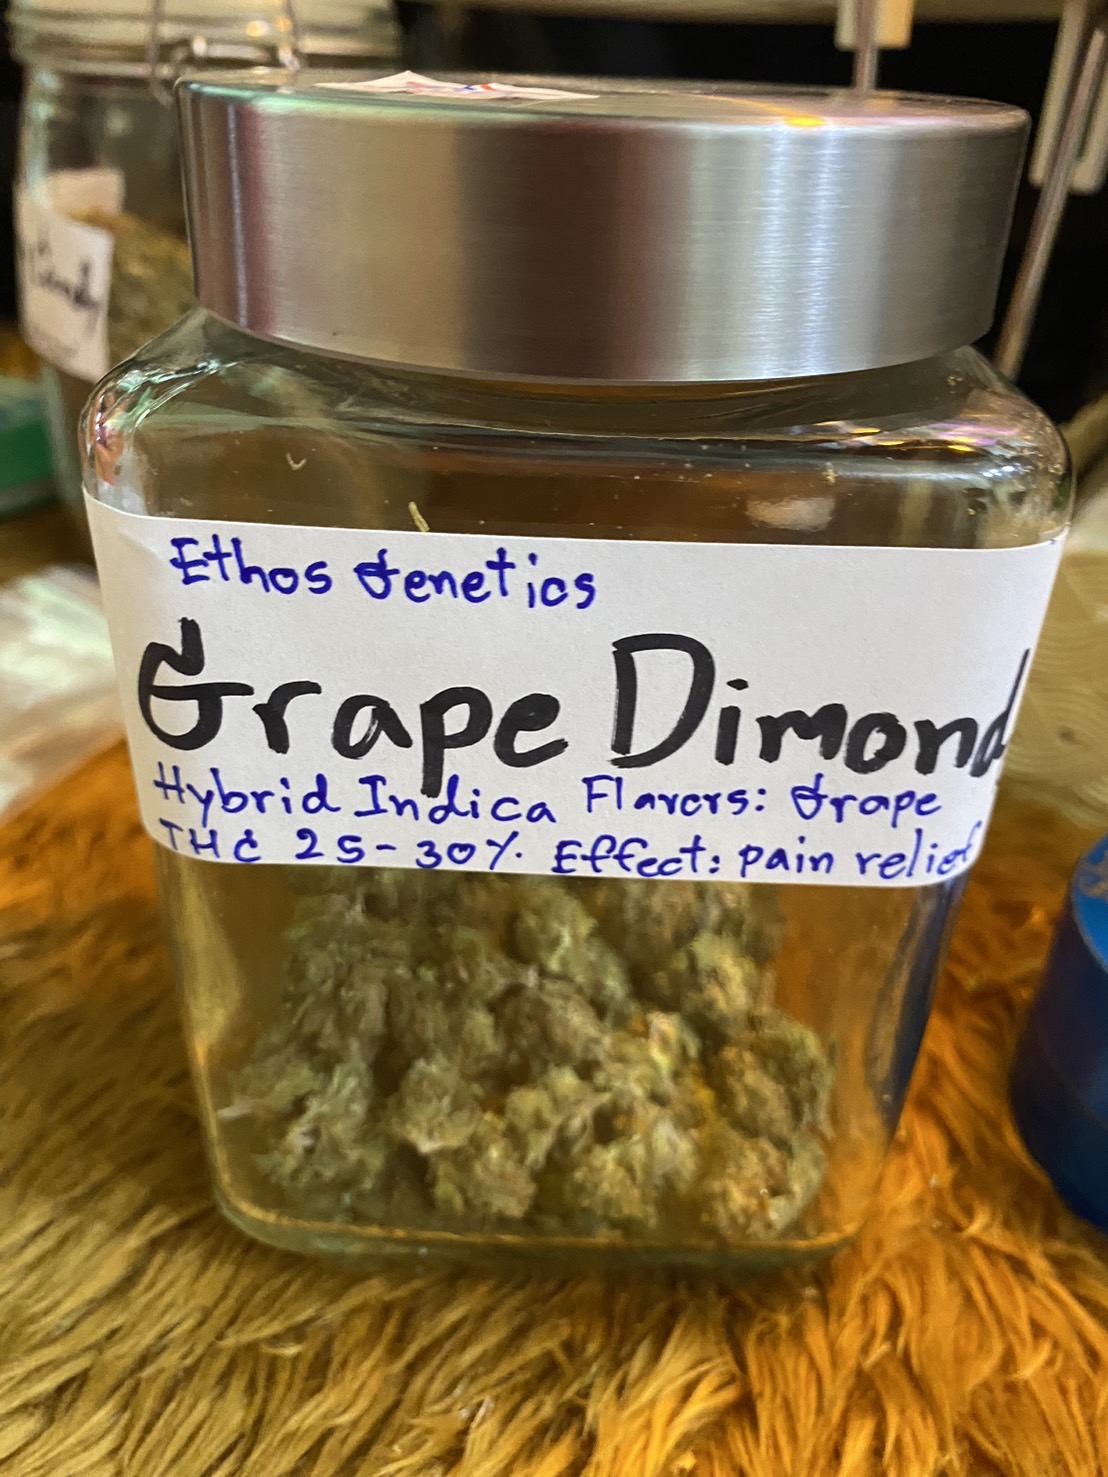 Ethos Genetics
Grape Dimond
Hybrid Indica Flavors: Grape
THC 25-30% Effect: pain relief
Candy